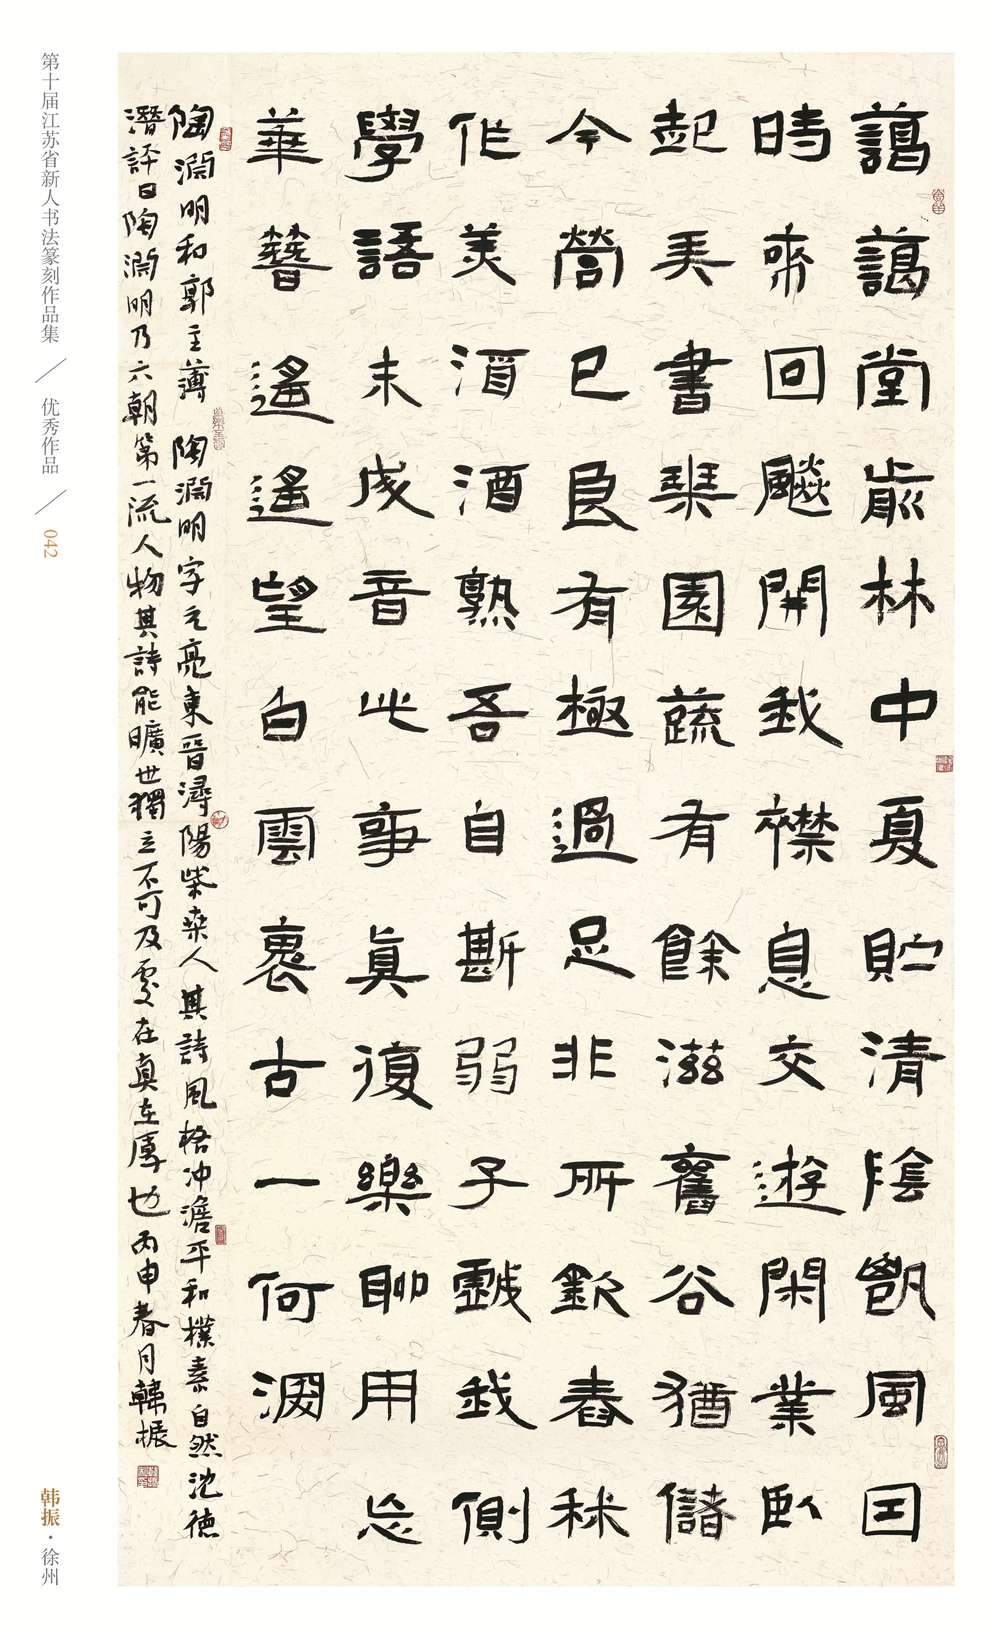 藹藹堂歬林中夏貯清陰凱風因
時來回飇開我襟息交遊閑業臥
起弄書琴園蔬有餘滋舊谷猶儲
今營已良有極過足非所欽舂秫
作美酒酒熟吾自斟弱子戲我側
學語未成音此事真復樂聊用忘
華簪遙遙望白雲褱古一何深
陶淵明和郭主薄 陶淵明字元亮東晉潯陽柴桑人其詩風格冲澹平和樸素自然沈德
潛評曰陶淵明乃六朝第一流人物其詩能曠世獨立不可及處在真在厚也丙申春月韓振
第十届江苏省新人书法篆刻作品集 / 优秀作品 / 042
韩振·徐州